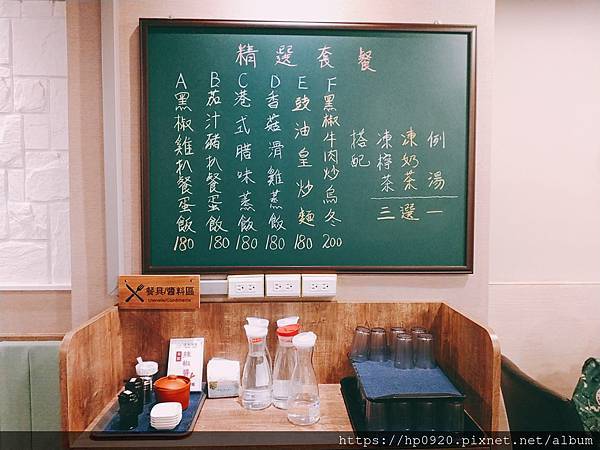 精選套餐
A 黑椒雞扒餐蛋飯 180
B 茄汁豬扒餐蛋飯 180
C 港式腊味蒸飯 180
D 香菇滑雞蒸飯 180
E 豉油皇炒麵 180
F 黑椒牛肉炒烏冬 200
搭配
凍檸茶
凍奶茶
例湯
三選一
餐具/醬料區
Utensils/Condiments
辣椒醬
https://hp0920.pixnet.net/album